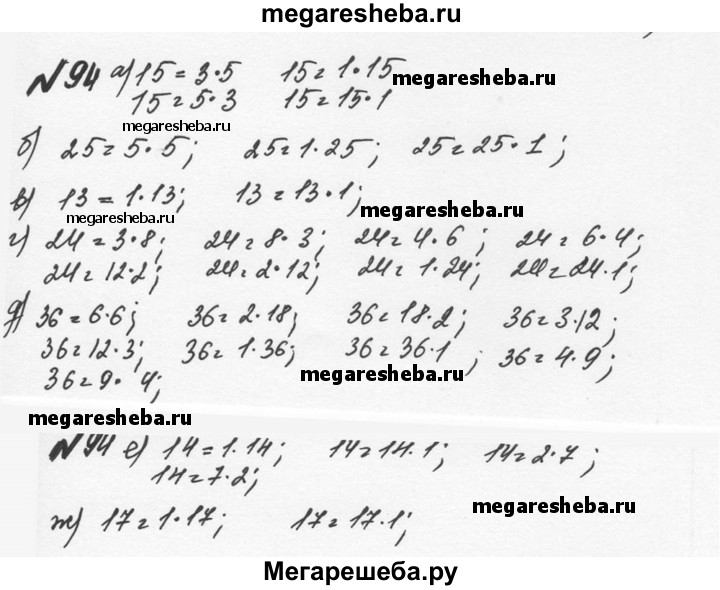 megaresheba.ru
№94 а) 15 = 3·5   15 = 1·15   megaresheba.ru
15 = 5·3   15 = 15·1
megaresheba.ru
б) 25 = 5·5;   25 = 1·25;   25 = 25·1;
в) 13 = 1·13;   13 = 13·1;
megaresheba.ru   megaresheba.ru
г) 24 = 3·8;   24 = 8·3;   24 = 4·6;   24 = 6·4;
24 = 12·2;   24 = 2·12;   24 = 1·24;   24 = 24·1;
д) 36 = 6·6;   36 = 2·18;   36 = 18·2;   36 = 3·12;
36 = 12·3;   36 = 1·36;   36 = 36·1;   36 = 4·9;
megaresheba.ru
36 = 9·4;
megaresheba.ru
№94 е) 14 = 1·14;   14 = 14·1;   14 = 2·7;
14 = 7·2;
megaresheba.ru
ж) 17 = 1·17;   17 = 17·1;
Мегарешеба.ру